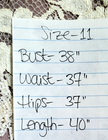 Size-11
Bust- 38"
Waist- 37"
Hips- 37"
Length- 40"